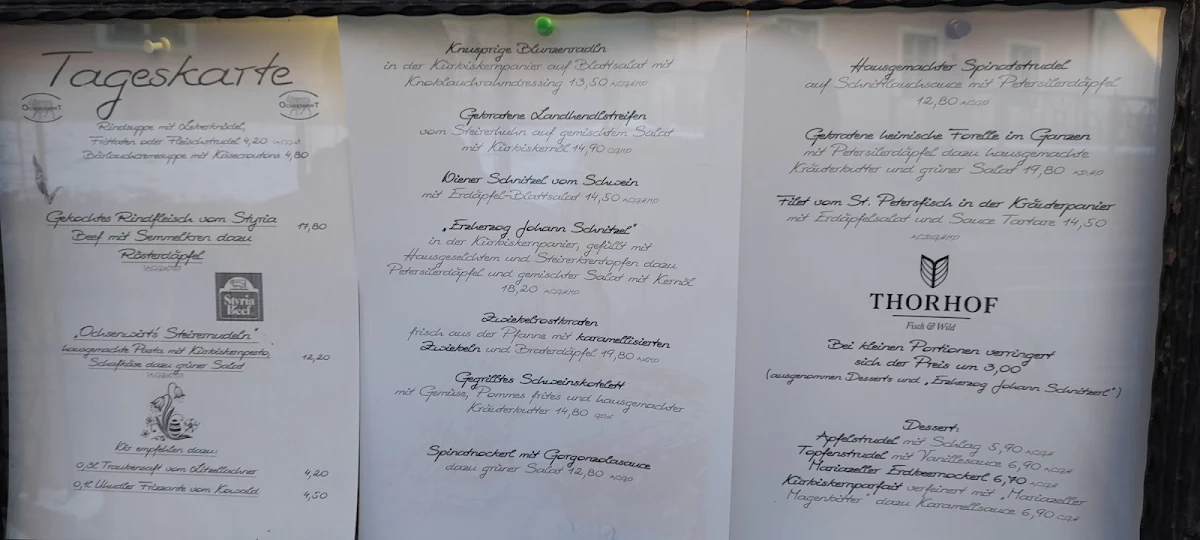 Tageskarte
OCHSENWIRT
OCHSENWIRT
Rindsuppe mit Leberknödel,
Frittaten oder Fleischstrudel 4,20
Bärlauchcremesuppe mit Käsecroutons 4,80
Gekochtes Rindfleisch vom Styria 17,80
Beef mit Semmelkren dazu
Rösterdäpfel
Styria
Beef
„Ochsenwirt's Steirernudeln"
hausgemachte Pasta mit Kürbiskernpesto, 12,20
Schafkäse dazu grüner Salat
Wir empfehlen dazu:
0,3l Traubensaft vom Litzellachner 4,20
0,1l Uhudler Frizzante vom Kowald 4,50
Knusprige Blunzenradln
in der Kürbiskernpanier auf Blattsalat mit
Knoblauchrahmdressing 13,50
Gebratene Landhendlstreifen
vom Steirerhuhn auf gemischtem Salat
mit Kürbiskernöl 14,90
Wiener Schnitzel vom Schwein
mit Erdäpfel-Blattsalat 14,50
„Erzherzog Johann Schnitzel"
in der Kürbiskernpanier, gefüllt mit
Hausgeselchtem und Steirerkrentopfen dazu
Petersilerdäpfel und gemischter Salat mit Kernöl
18,20
Zwiebelrostbraten
frisch aus der Pfanne mit karamellisierten
Zwiebeln und Braterdäpfel 19,80
Gegrilltes Schweinskotelett
mit Gemüse, Pommes frites und hausgemachter
Kräuterbutter 14,80
Spinatnockerl mit Gorgonzolasauce
dazu grüner Salat 12,80
Hausgemachter Spinatstrudel
auf Schnittlauchsauce mit Petersilerdäpfel
12,80
Gebratene heimische Forelle im Ganzen
mit Petersilerdäpfel dazu hausgemachte
Kräuterbutter und grüner Salat 19,80
Filet vom St. Petersfisch in der Kräuterpanier
mit Erdäpfelsalat und Sauce Tartare 14,50
THORHOF
Fisch & Wild
Bei kleinen Portionen verringert
sich der Preis um 3,00
(ausgenommen Desserts und „Erzherzog Johann Schnitzerl")
Dessert:
Apfelstrudel mit Schlag 5,90
Topfenstrudel mit Vanillesauce 6,90
Mariazeller Erdbeernockerl 6,70
Kürbiskernparfait verfeinert mit „Mariazeller
Magenbitter" dazu Karamellsauce 6,90